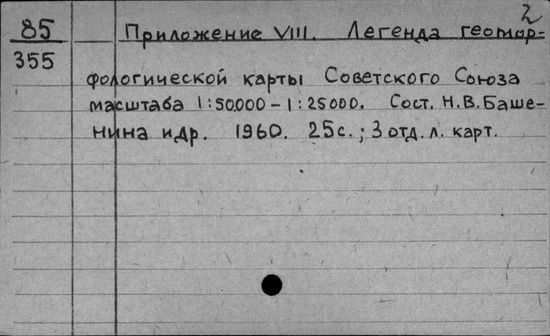 2
85 Приложение VIII. Легенда геомор-
355
фологической карты Советского Союза
масштаба 1:50.000-1:25000. Сост. Н.В.Баше-
нина и др. 1960. 25с.; 3 отд. л. карт.